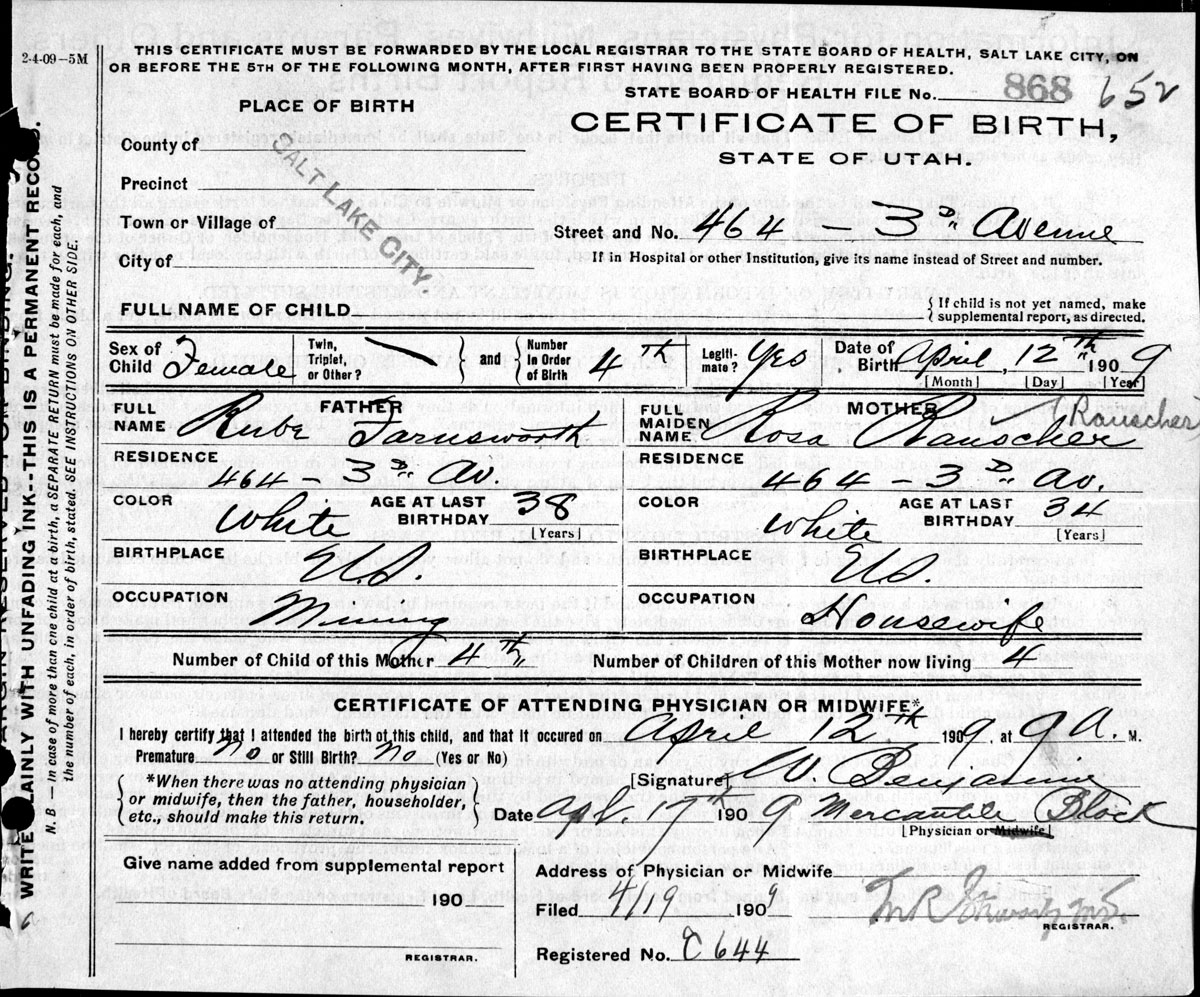 2-4-09—5M
THIS CERTIFICATE MUST BE FORWARDED BY THE LOCAL REGISTRAR TO THE STATE BOARD OF HEALTH, SALT LAKE CITY, ON
OR BEFORE THE 5TH OF THE FOLLOWING MONTH, AFTER FIRST HAVING BEEN PROPERLY REGISTERED.
STATE BOARD OF HEALTH FILE No. 868 652
PLACE OF BIRTH
CERTIFICATE OF BIRTH,
STATE OF UTAH.
County of
Precinct
Town or Village of
City of
SALT LAKE CITY
Street and No. 464 — 3D. Avenue
If in Hospital or other Institution, give its name instead of Street and number.
FULL NAME OF CHILD
{ If child is not yet named, make
supplemental report, as directed.
Sex of Child Female
Twin, Triplet, or Other?
and
Number in Order of Birth 4th
Legitimate? Yes
Date of Birth April, 12th 1909
[Month] [Day] [Year]
FATHER
FULL NAME Rube Farnsworth
MOTHER
FULL MAIDEN NAME Rosa Rauscher
Rauscher
RESIDENCE 464 — 3D. Av.
RESIDENCE 464 — 3D Av.
COLOR White
AGE AT LAST BIRTHDAY 38
[Years]
COLOR White
AGE AT LAST BIRTHDAY 34
[Years]
BIRTHPLACE U.S.
BIRTHPLACE U.S.
OCCUPATION Mining
OCCUPATION Housewife
Number of Child of this Mother 4th
Number of Children of this Mother now living 4
CERTIFICATE OF ATTENDING PHYSICIAN OR MIDWIFE*
I hereby certify that I attended the birth of this child, and that it occured on April 12th 1909, at 9 A. M.
Premature No or Still Birth? No (Yes or No)
*When there was no attending physician
or midwife, then the father, householder,
etc., should make this return.
[Signature] W. Benjamin
Date Apl. 17th 1909 Mercantile Block
[Physician or Midwife]
Give name added from supplemental report
190
REGISTRAR.
Address of Physician or Midwife
Filed 4/19 1909
M.D.
REGISTRAR.
Registered No. C 644
WRITE PLAINLY WITH UNFADING INK--THIS IS A PERMANENT RECORD.
N. B.—In case of more than one child at a birth, a SEPARATE RETURN must be made for each, and
the number of each, in order of birth, stated. SEE INSTRUCTIONS ON OTHER SIDE.